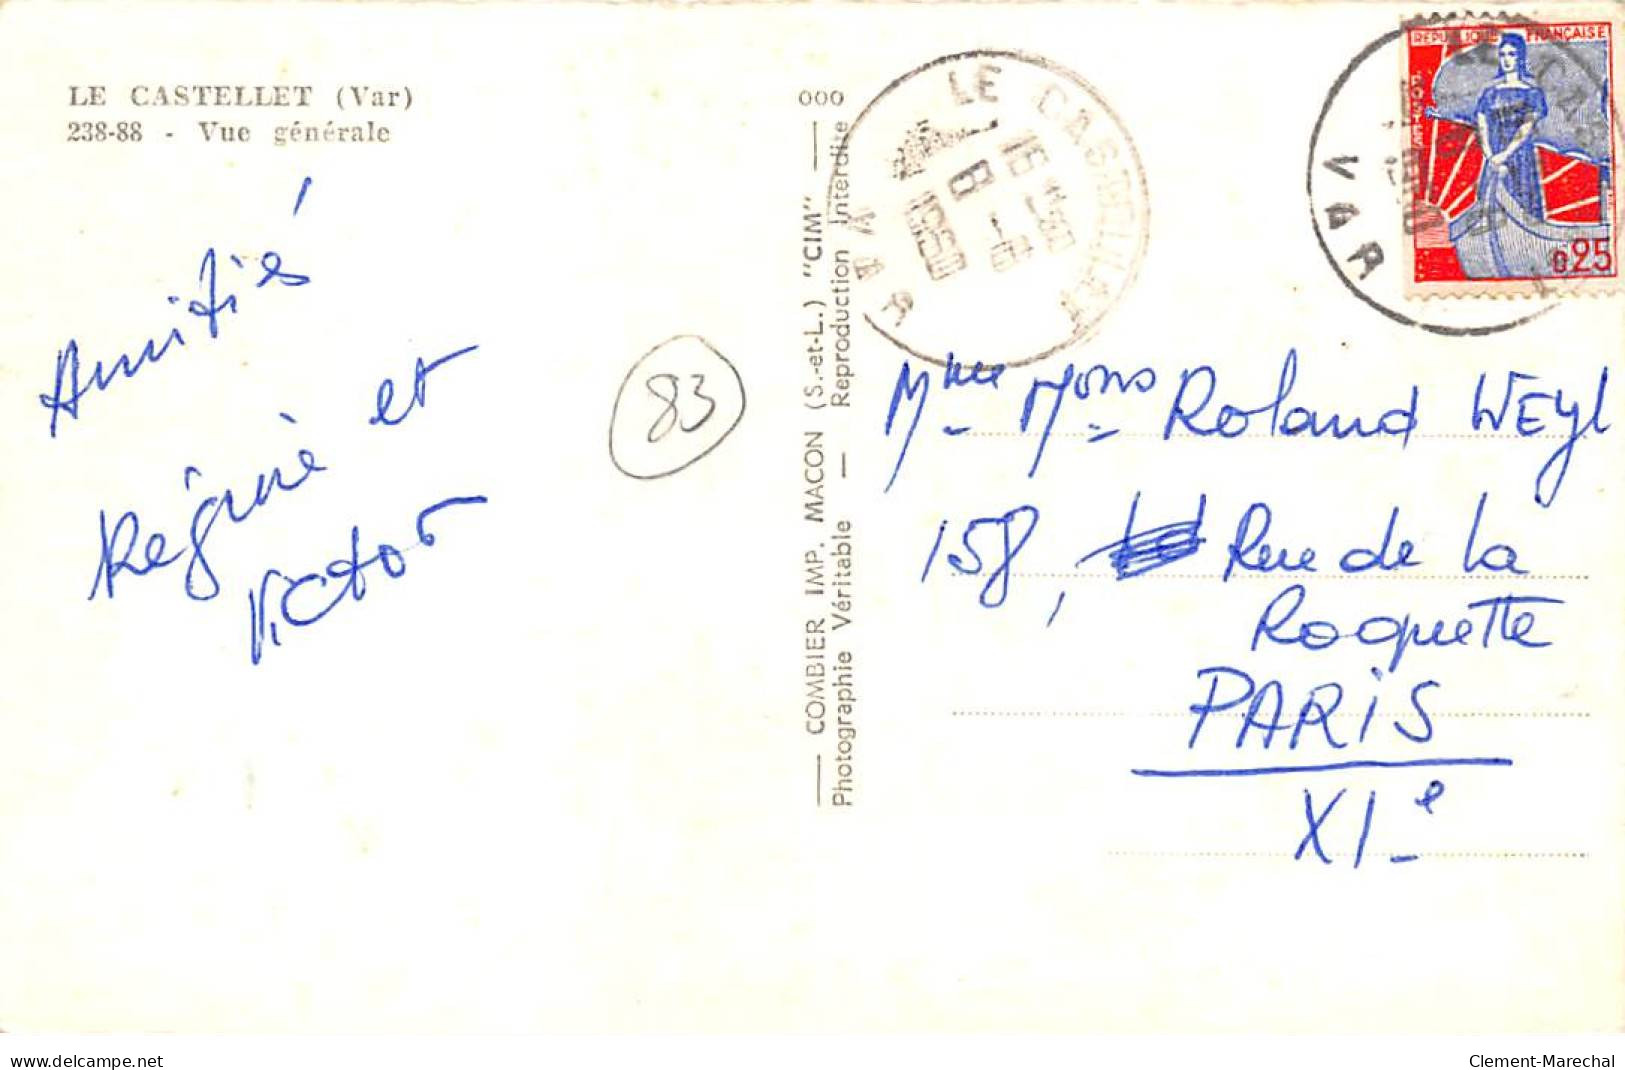 LE CASTELLET (Var)
238-88 - Vue générale
Amitiés
Régine et
Victor
83
000
COMBIER IMP. MACON (S.-et-L.) "CIM"
Photographie Véritable — Reproduction Interdite
LE CASTELLET
15H30
8 - 8
1960
VAR
REPUBLIQUE FRANÇAISE
0,25
LE CASTELLET
VAR
Mme Mons Roland WEYL
158, Rue de la
Roquette
PARIS
XIe
delcampe.net
Clement-Marechal